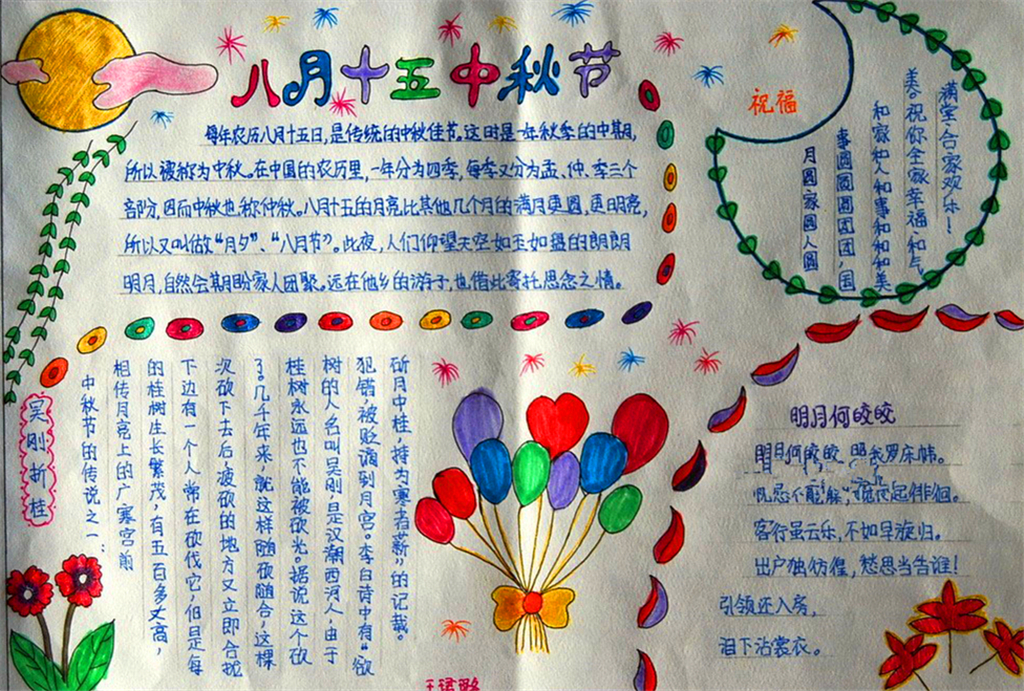 八月十五中秋节
每年农历八月十五日,是传统的中秋佳节。这时是一年秋季的中期,
所以被称为中秋。在中国的农历里,一年分为四季,每季又分为孟、仲、季三个
部分,因而中秋也称仲秋。八月十五的月亮比其他几个月的满月更圆,更明亮,
所以又叫做“月夕”、“八月节”。此夜,人们仰望天空如玉如盘的朗朗
明月,自然会期盼家人团聚。远在他乡的游子,也借此寄托思念之情。
祝福
满堂,合家欢乐!
美。祝你全家幸福、和气
和家和人和事和和和美
事圆圆圆圆团,国
月圆家圆人圆
斫月中桂,持为寒者薪”的记载。
犯错,被贬谪到月宫。李白诗中有“欲
树的人名叫吴刚,是汉潮西河人,由于
桂树永远也不能被砍光。据说这个砍
了。几千年来,就这样随砍随合,这棵
次砍下去后,被砍的地方又立即合拢
下边有一个人常在砍伐它,但是每
的桂树生长繁茂,有五百多丈高,
相传月亮上的广寒宫前
中秋节的传说之一:
吴刚折桂
明月何皎皎
明月何皎皎,照我罗床帏。
忧愁不能寐,揽衣起徘徊。
客行虽云乐,不如早旋归。
出户独彷徨,愁思当告谁!
引领还入房,
泪下沾裳衣。